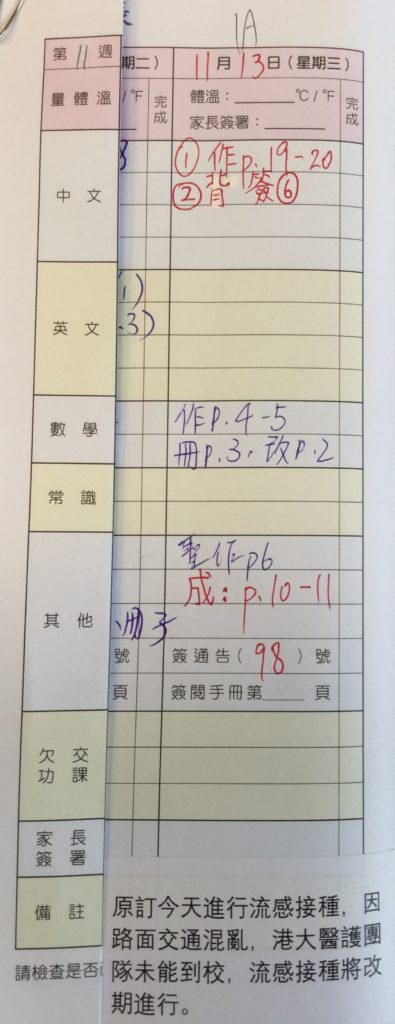 1A
第 11 週
期二)
11月13日(星期三)
量體溫
/°F
完成
體溫：______°C/°F
完成
家長簽署：______
中文
① 作p.19-20
② 背 簽⑥
英文
(1)
.3)
數學
作p.4-5
冊p.3，改p.2
常識
其他
聖作p6
成：p.10-11
冊子
號
簽通告(98)號
頁
簽閱手冊第____頁
欠交
功課
家長
簽署
備註
原訂今天進行流感接種，因
路面交通混亂，港大醫護團
隊未能到校，流感接種將改
期進行。
請檢查是否